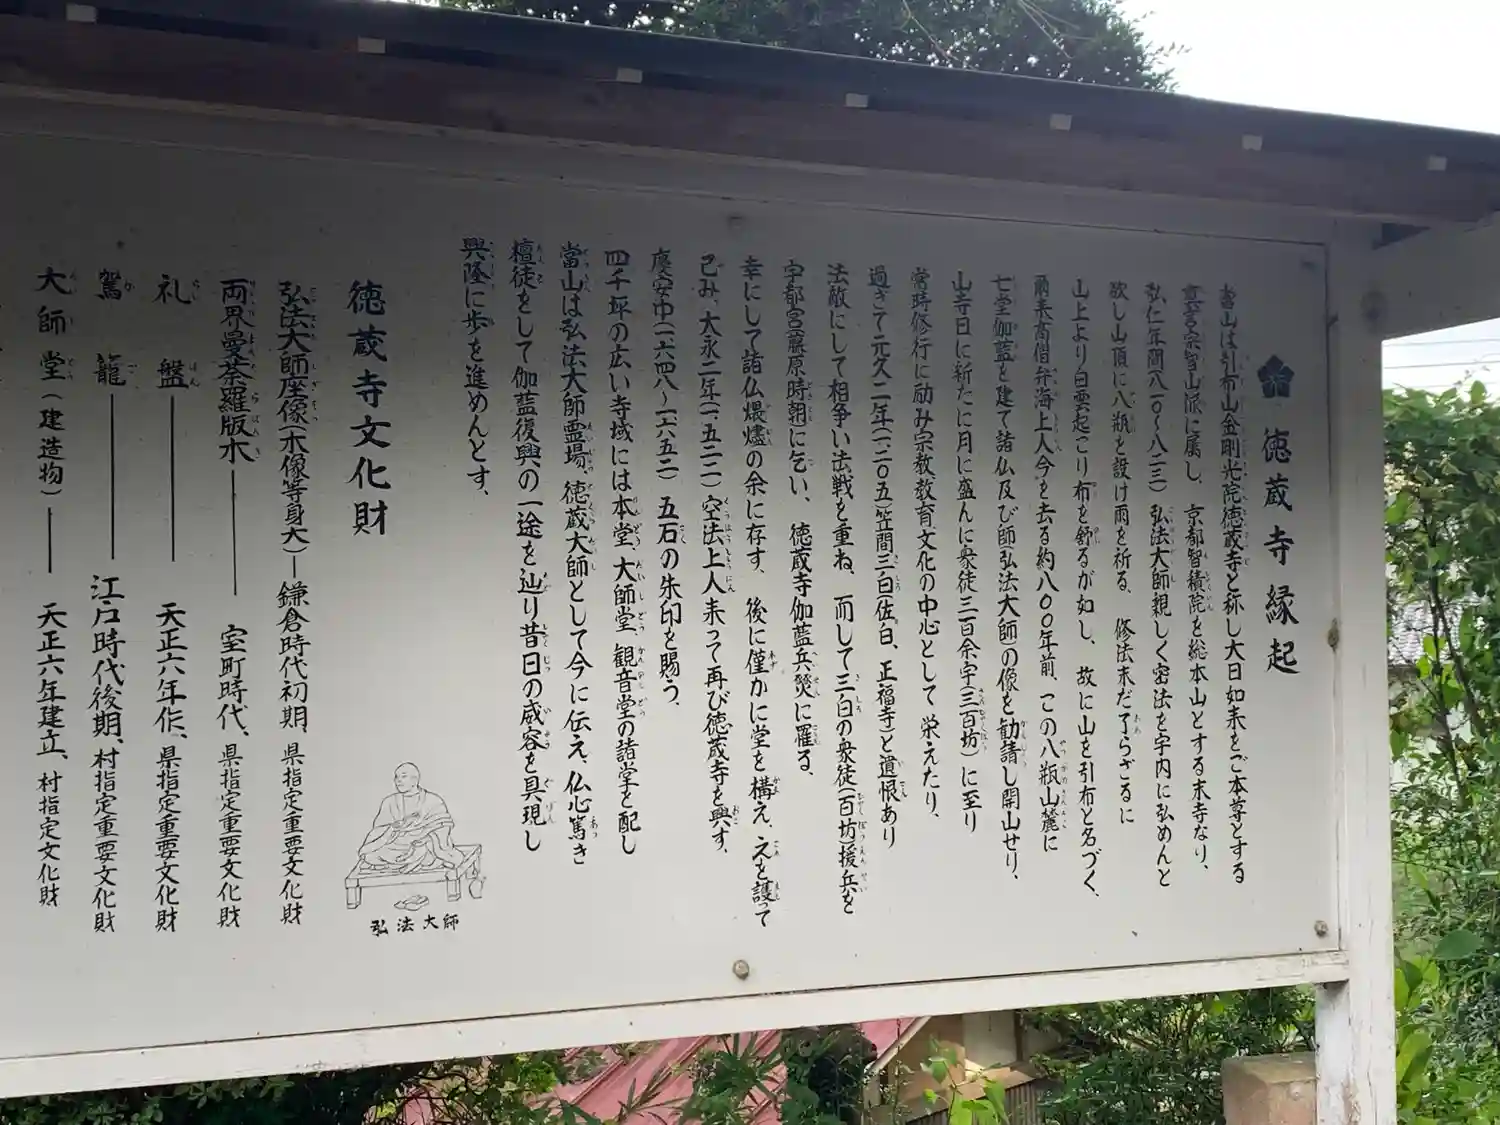 徳蔵寺縁起
當山は引布山金剛光院徳蔵寺と称し大日如来をご本尊とする
真言宗智山派に属し、京都智積院を総本山とする末寺なり、
弘仁年間(八一〇〜八二三)弘法大師親しく密法を宇内に弘めんと
欲し山頂に八瓶を設け雨を祈る、修法未だ了らざるに
山上より白雲起こり布を舒るが如し、故に山を引布と名づく、
爾来高僧弁海上人今を去る約八〇〇年前、この八瓶山麓に
七堂伽藍を建て諸仏及び師弘法大師の像を勧請し開山せり、
山寺日に新たに月に盛んに衆徒三百余宇(三百坊)に至り
常時修行に励み宗教教育文化の中心として栄えたり、
過ぎて元久二年(一二〇五)笠間三白(佐白、正福寺)と遺恨あり
法敵にして相争い法戦を重ね、而して三白の衆徒(百坊)援兵を
宇都宮藤原時朝に乞い、徳蔵寺伽藍兵燹に罹る、
幸にして諸仏煨燼の余に存す、後に僅かに堂を構え、之を護って
已み、大永二年(一五二二)空法上人来って再び徳蔵寺を興す、
慶安中(一六四八〜一六五二)五石の朱印を賜う、
四千坪の広い寺域には本堂、大師堂、観音堂の諸堂を配し
當山は弘法大師霊場、徳蔵大師として今に伝え、仏心篤き
檀徒をして伽藍復興の一途を辿り昔日の威容を具現し
興隆に歩を進めんとす、
徳蔵寺文化財
弘法大師座像(木像等身大)―鎌倉時代初期、県指定重要文化財
両界曼荼羅版木――室町時代、県指定重要文化財
礼盤――天正六年作、県指定重要文化財
駕籠――江戸時代後期、村指定重要文化財
大師堂(建造物)――天正六年建立、村指定文化財
弘法大師